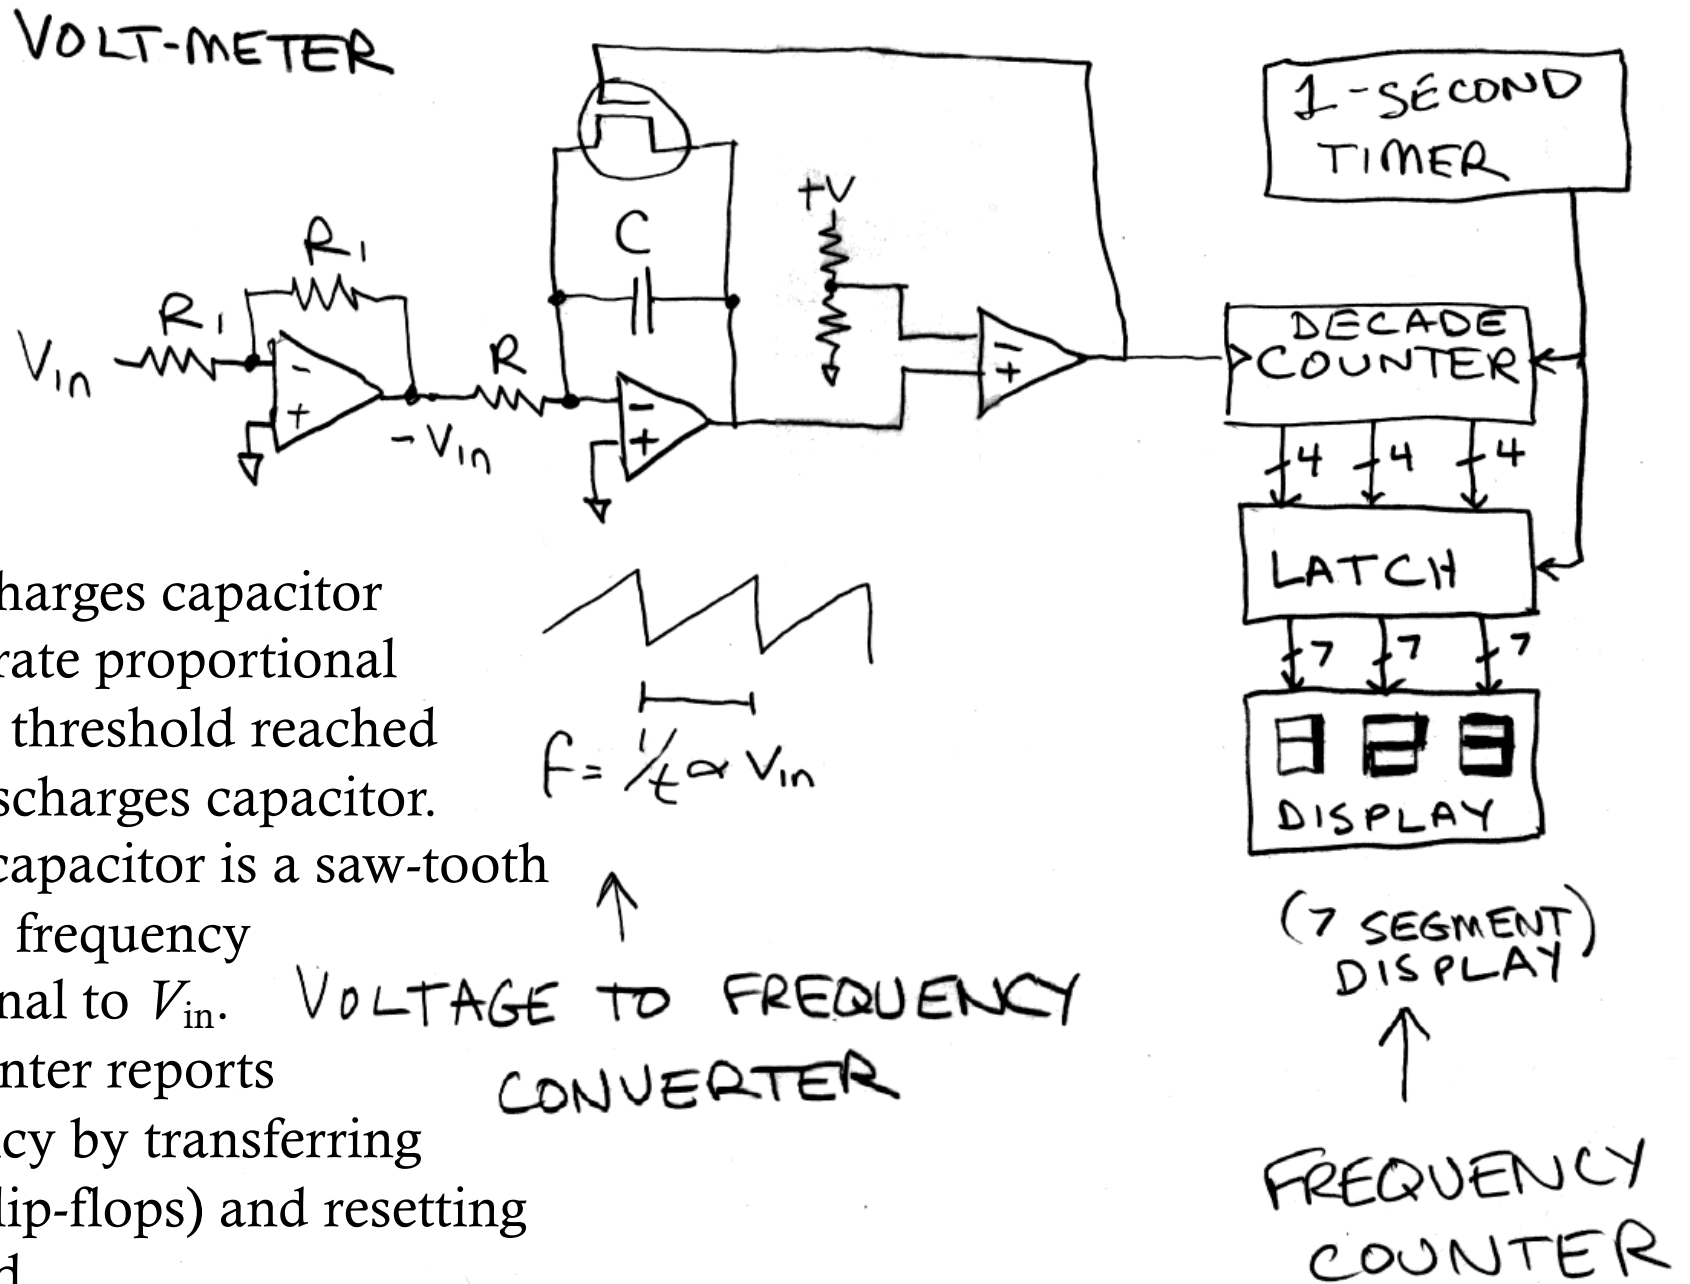 VOLT-METER
1-SECOND
TIMER
+V
C
R1
R1
Vin
-
+
-Vin
R
-
+
-
+
DECADE
COUNTER
4 4 4
LATCH
7 7 7
123
DISPLAY
(7 SEGMENT)
DISPLAY
FREQUENCY
COUNTER
f = 1/t ∝ Vin
VOLTAGE TO FREQUENCY
CONVERTER
harges capacitor
rate proportional
threshold reached
scharges capacitor.
capacitor is a saw-tooth
frequency
nal to Vin.
nter reports
cy by transferring
lip-flops) and resetting
d